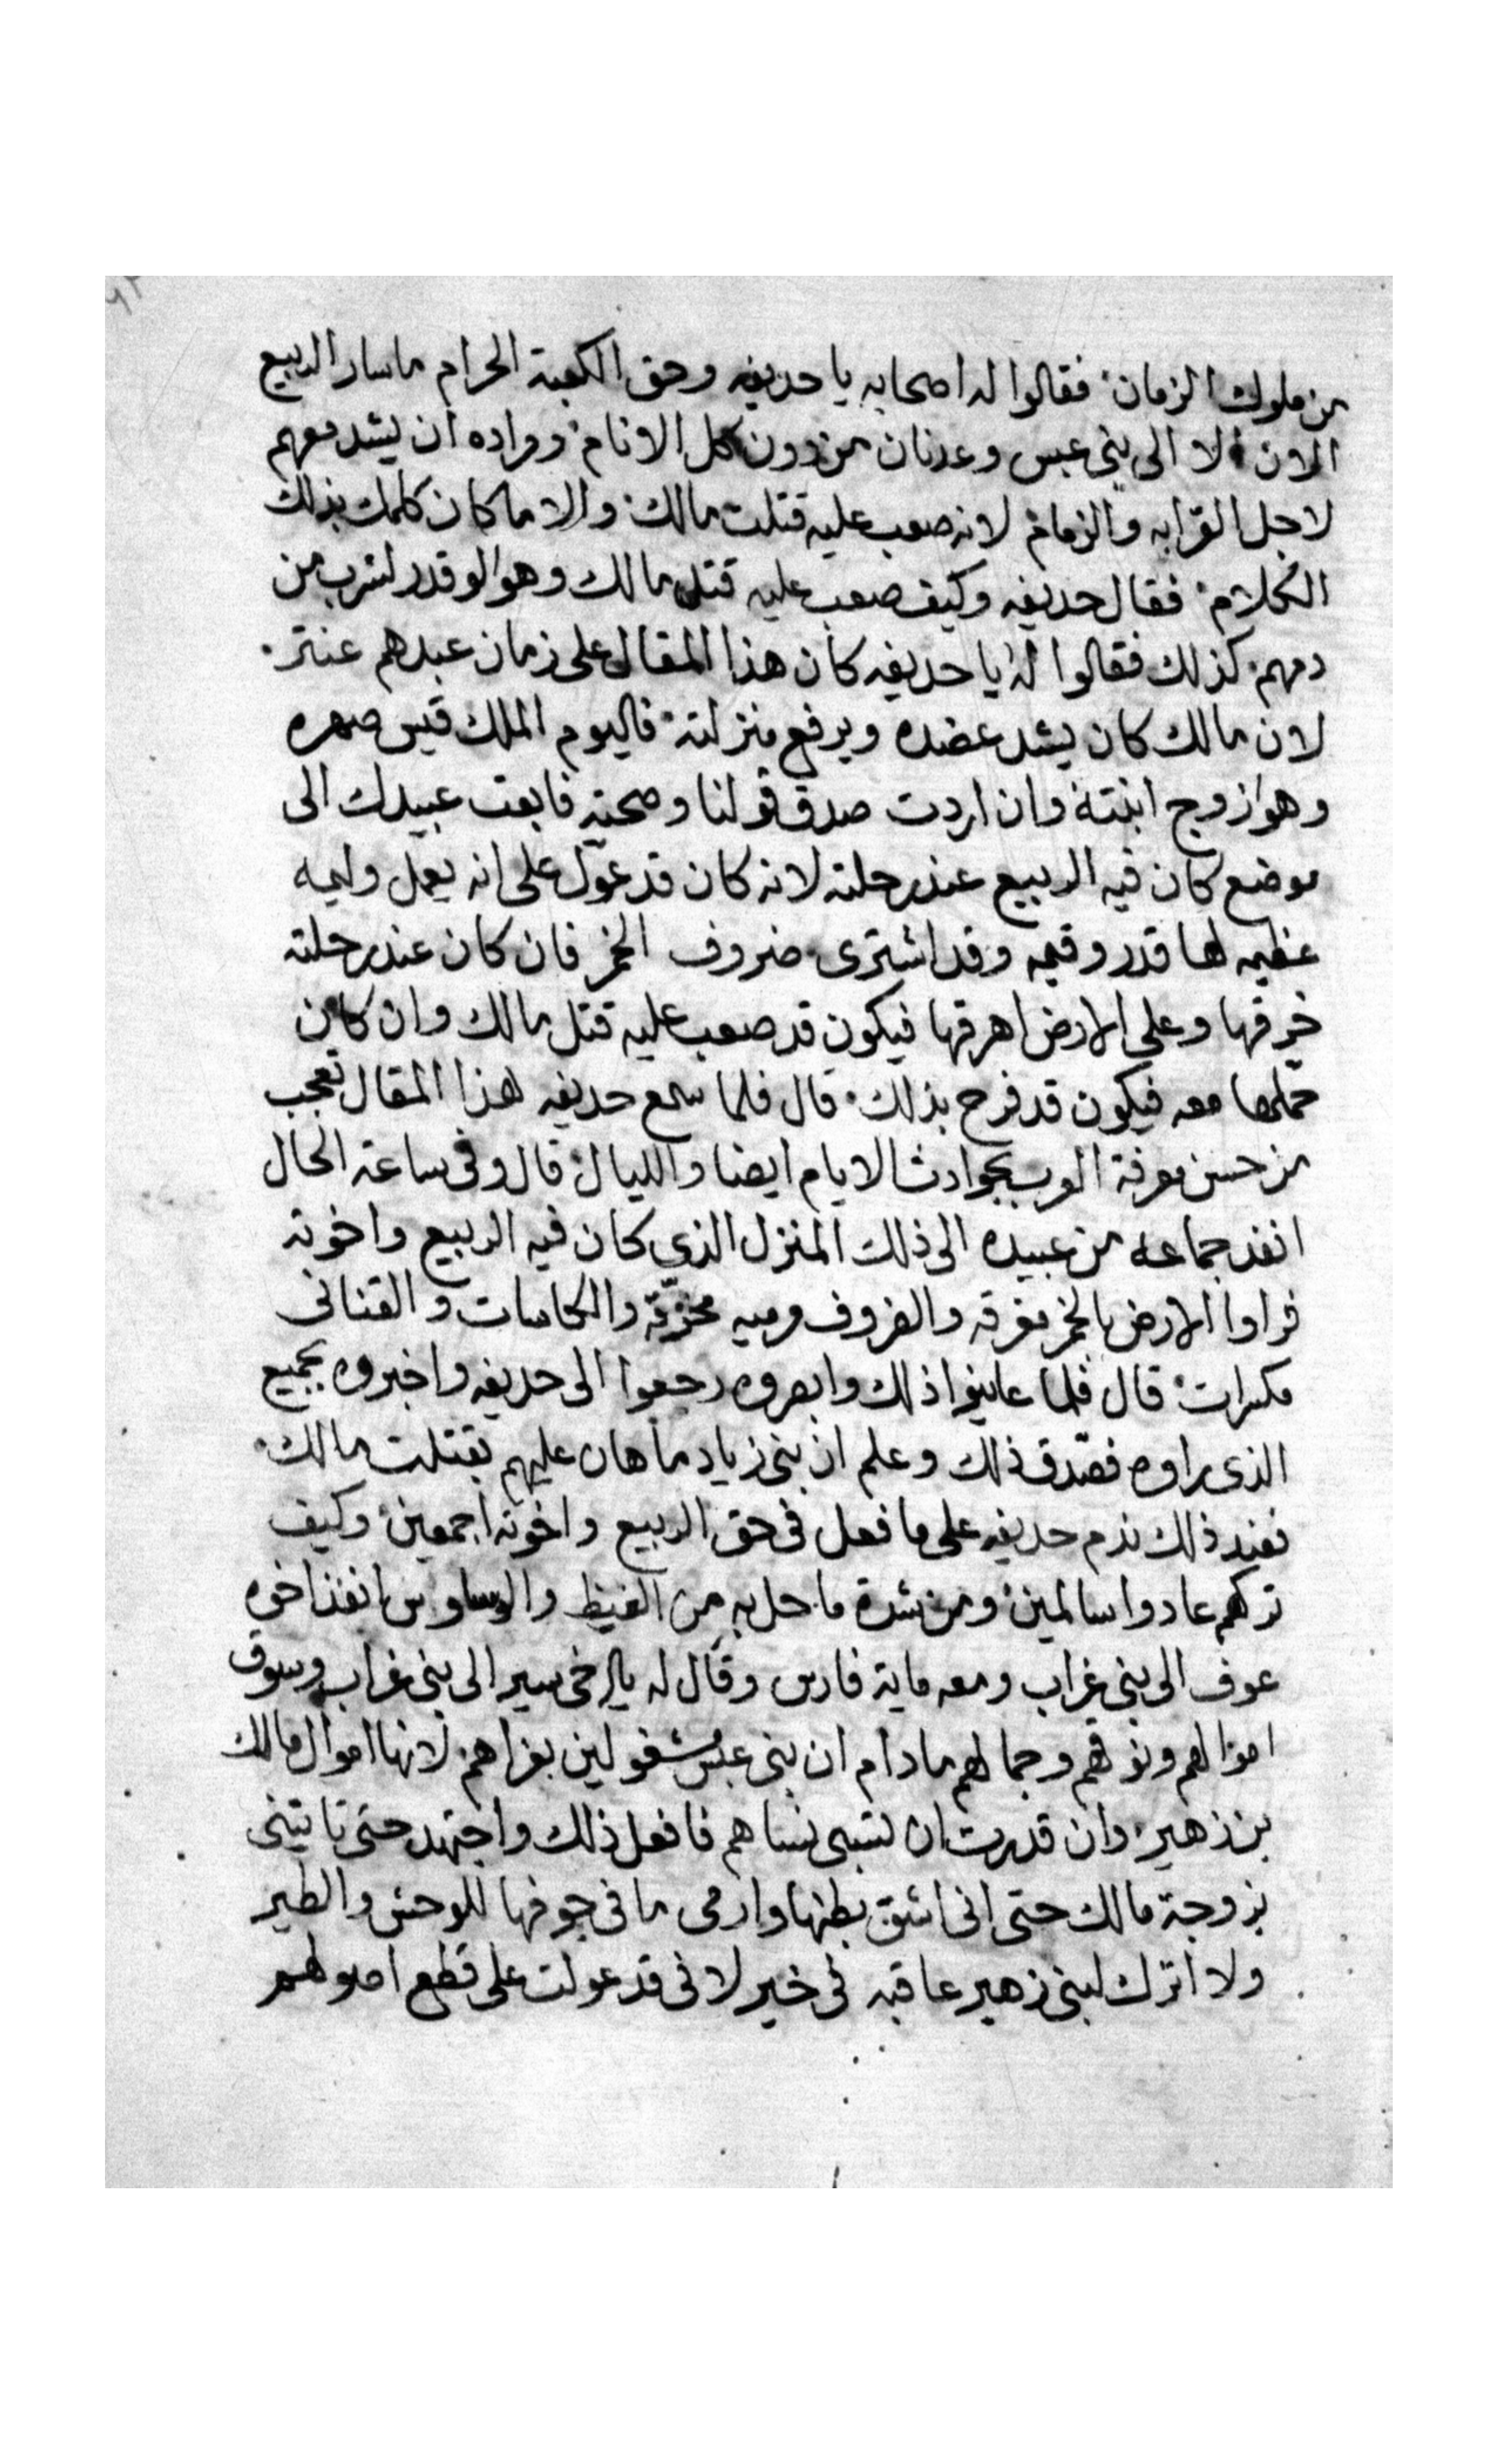 من ملوك الزمان فقالوا له اصحابه يا حديفه وحق الكعبة الحرام ما سار الربيع
الان الا الى بني عبس وعدنان من دون كل الانام ومراده ان يشد معهم
لاجل القرابه والزمام لانه صعب عليه قتلت مالك والا ما كان كلمك بذلك
الكلام فقال حديفه وكيف صعب عليه قتل مالك وهوا لو قدر لشرب من
دمهم كذلك فقالوا له يا حديفه كان هذا المقال على زمان عبدهم عنتر
لان مالك كان يشد عضده ويرفع منزلته فاليوم الملك قيس صهره
وهوا زوج ابنته وان اردت صدق قولنا وصحته فابعت عبيدك الى
موضع كان فيه الربيع عند رحلته لانه كان قد عوّل على انه يعمل وليمه
عظيمه لها قدر وقيمه وقد اشترى ضروف الخمر فان كان عند رحلته
خرقها وعلى الارض اهرقها فيكون قد صعب عليه قتل مالك وان كان
حملها معه فيكون قد فرح بذلك قال فلما سمع حديفه هذا المقال تعجب
من حسن معرفة العرب بحوادث الايام ايضا والليال قال وفى ساعة الحال
انفد جماعه من عبيده الى ذلك المنزل الذي كان فيه الربيع واخوته
فراوا الارض بالخمر مغرقه والضروف مرميه مخرّقه والكاسات والقنانى
مكسرات قال فلما عاينوا ذلك وابصروه رجعوا الى حديفه واخبروه بجميع
الذى راوه فصّدق ذلك وعلم ان بنى زياد ما هان عليهم بقتلت مالك
فعند ذلك ندم حديفه على ما فعل فى حق الربيع واخوته اجمعين وكيف
تركهم عادوا سالمين ومن شدة ما حل به من الغيظ والوسواس انفذ اخوه
عوف الى بنى غراب ومعه ماية فارس وقال له يا اخى سير الى بنى غراب وسوق
اموالهم ونوقهم وجمالهم ما دام ان بنى عبس مشغولين بعزاهم لانها اموال مالك
بن زهير وان قدرت ان تسبى نساهم فافعل ذلك واجتهد حتى تاتينى
بزوجة مالك حتى انى اشق بطنها وارمى ما فى جوفها للوحش والطير
ولا اترك لبنى زهير عاقبه فى خير لانى قد عولت على قطع اصولهم